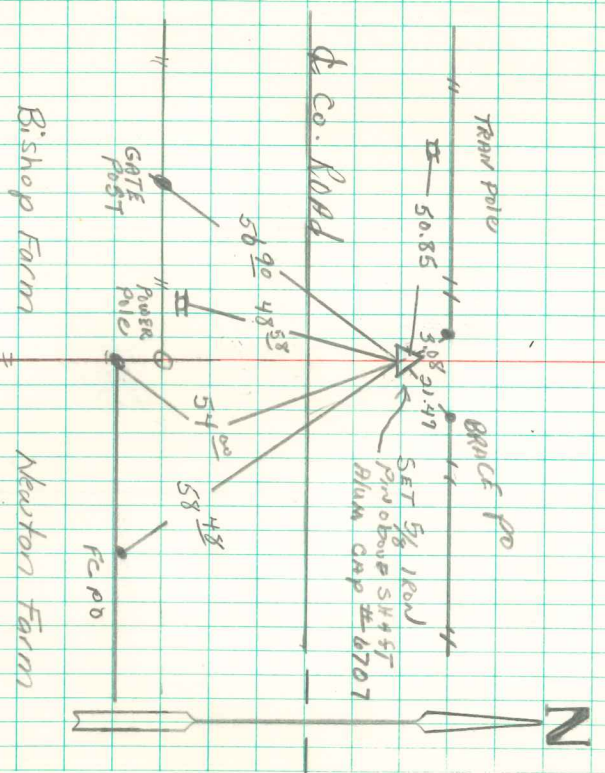 N
TRAN Pole
50.85
3.08
21.47
BRACE po
SET 5/8 IRON
Pin above SHAFT
Alum CAP # 6707
℄ Co. ROAD
56 90
48 58
54 00
58 48
GATE
POST
POWER
Pole
Fc po
Bishop Farm
Newton Farm